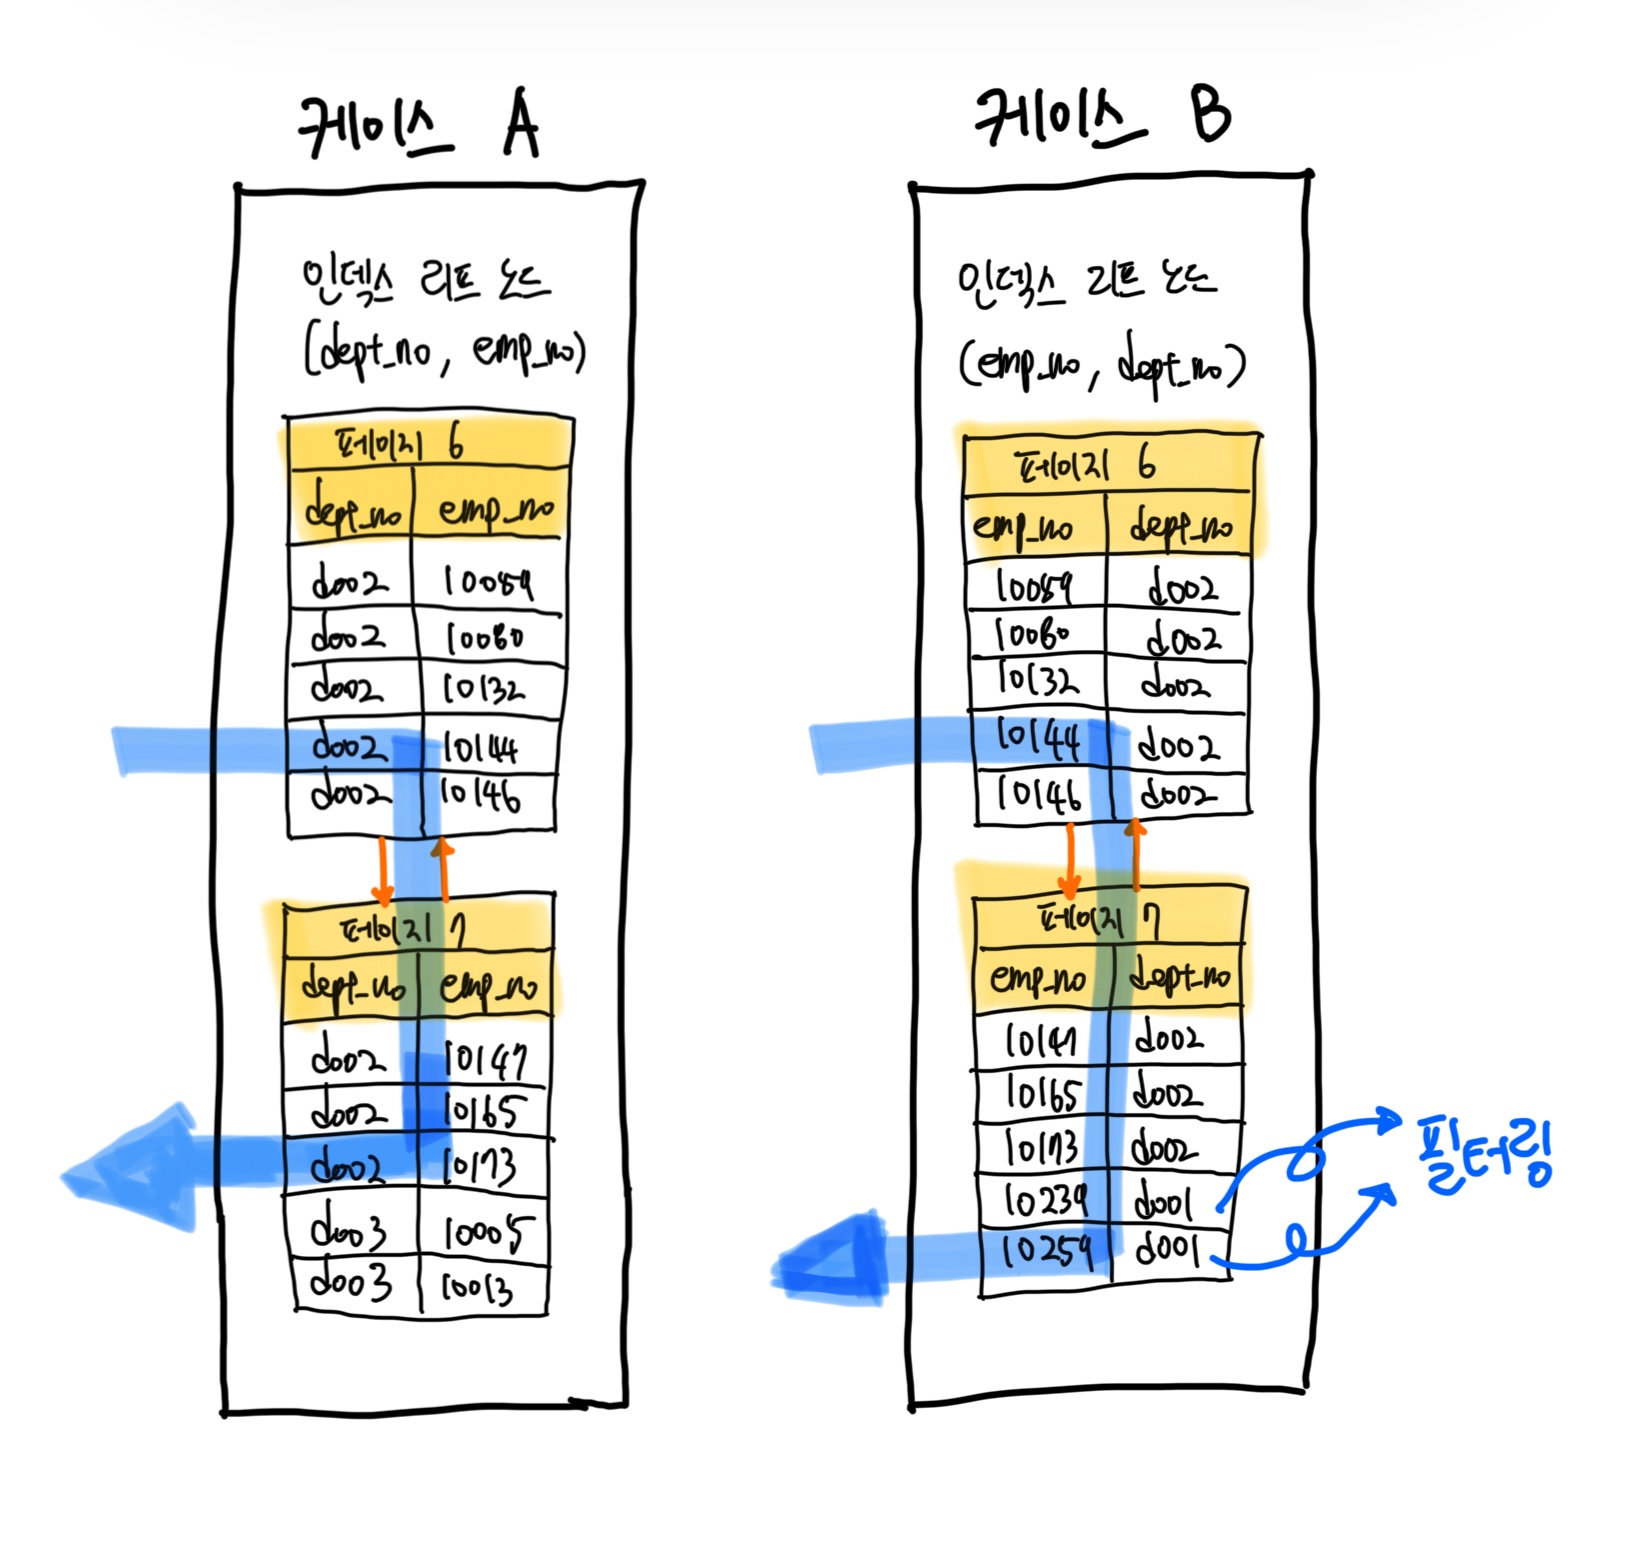 케이스 A
인덱스 리프 노드
(dept_no, emp_no)
페이지 6
dept_no emp_no
d002 10059
d002 10080
d002 10132
d002 10144
d002 10146
페이지 7
dept_no emp_no
d002 10147
d002 10165
d002 10173
d003 10005
d003 10013
케이스 B
인덱스 리프 노드
(emp_no, dept_no)
페이지 6
emp_no dept_no
10059 d002
10080 d002
10132 d002
10144 d002
10146 d002
페이지 7
emp_no dept_no
10147 d002
10165 d002
10173 d002
10239 d001
10259 d001
필터링